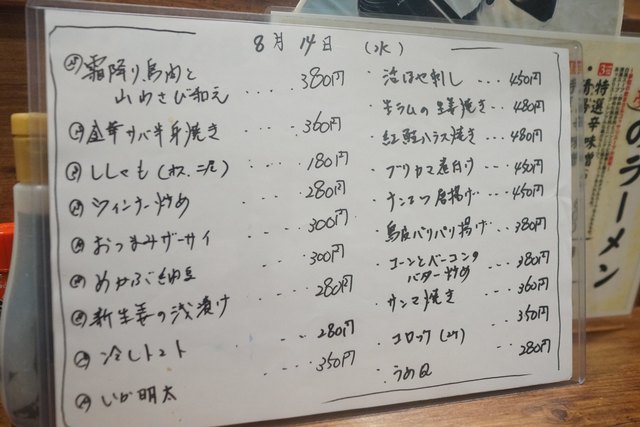 8月14日 (水)
霜降り鳥肉と
山わさび和え ････ 380円
金華サバ半身焼き ････ 360円
ししゃも(オス、二尾) ･･･ 180円
ウインナー炒め ･･･ 280円
おつまみザーサイ ･･･ 300円
めかぶ納豆 ･･･ 300円
新生姜の浅漬け ･･･ 280円
冷しトマト ･･･ 280円
いか明太 ･･･ 350円
・活ほや刺し ･･･ 450円
・生ラムの生姜焼き ･･･ 480円
・紅鮭ハラス焼き ･･･ 480円
・ブリカマ塩焼き ･･･ 450円
・ナンコツ唐揚げ ･･･ 450円
・鳥皮パリパリ揚げ ･･･ 380円
・コーンとベーコンの
バター炒め ･･･ 380円
・サンマ焼き ･･･ 360円
・コロッケ(2ケ) ･･･ 350円
・うめQ ･･･ 280円
のラーメン
・特選辛味噌